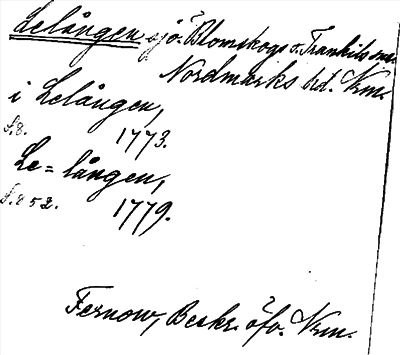 Lelången sjö. Blomskogs o. Trankils snr.
Nordmarks hd. Vrm.
i Lelången,
s.8. 1773.
Le=lången,
s.852. 1779.
Fernow, Beskr. öfv. Vrm.